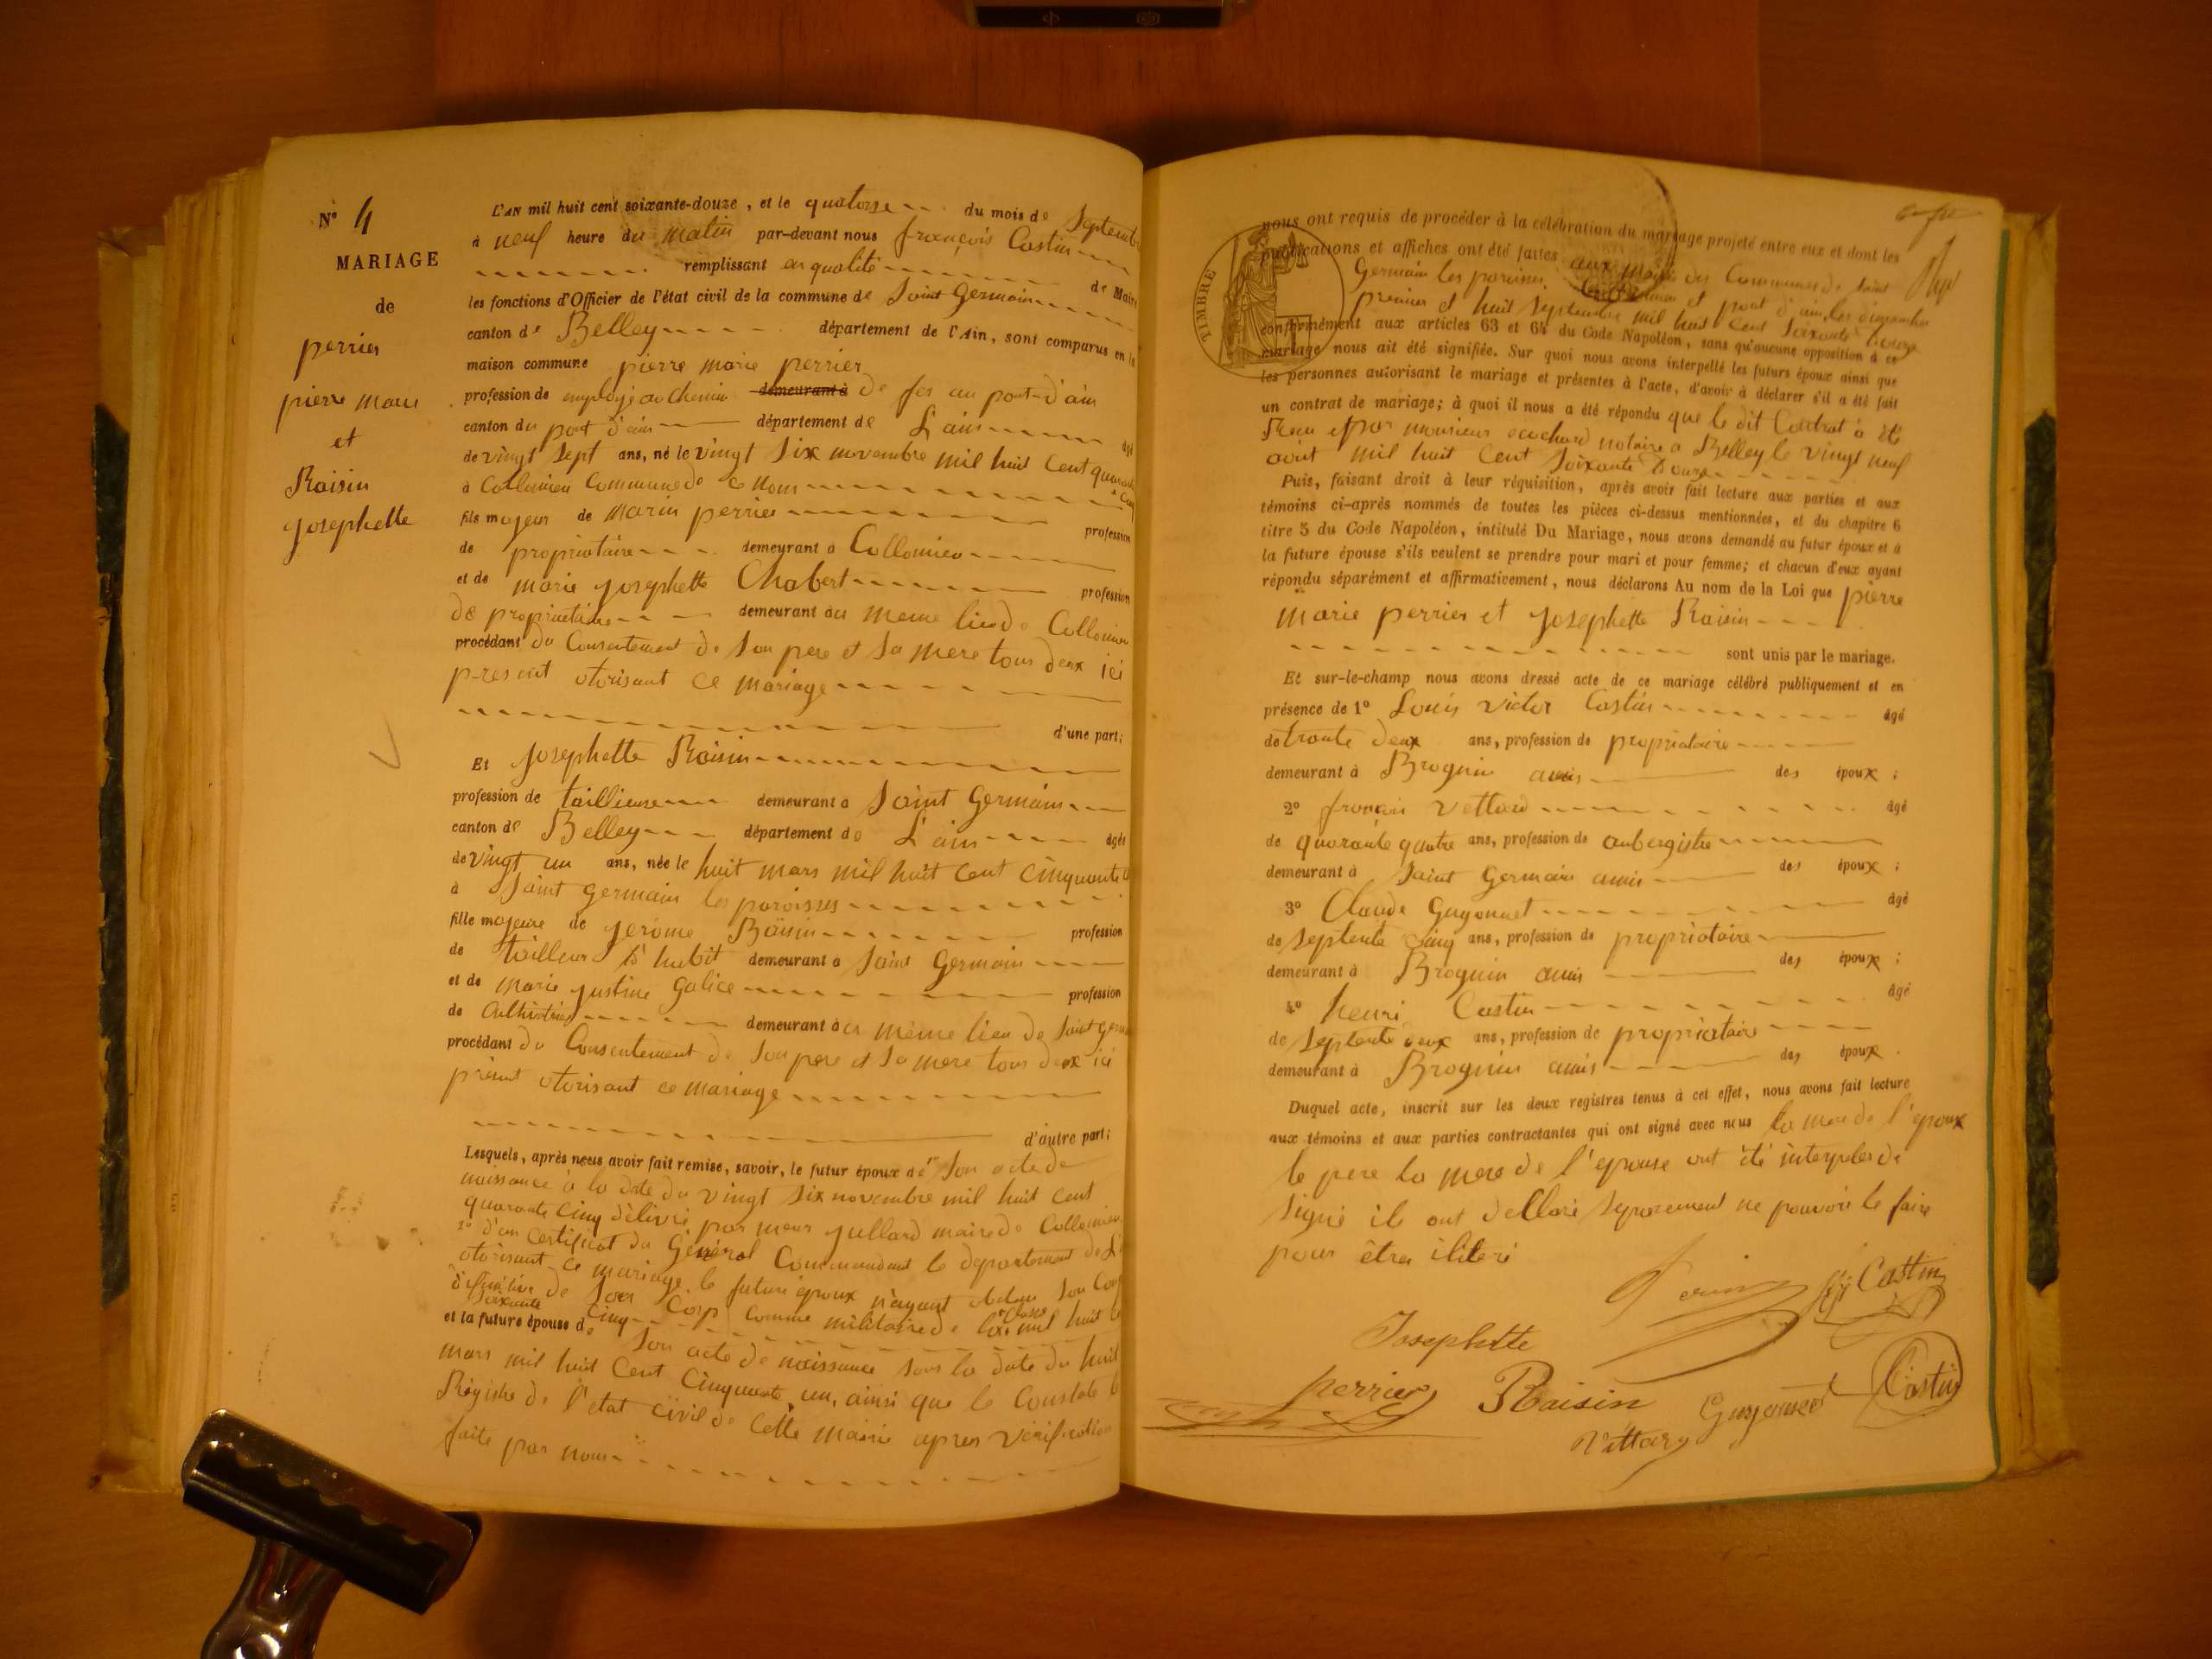 N° 4
MARIAGE
de
perrier
pierre marie
et
Raisin
Josephette
L'AN mil huit cent soixante-douze, et le quatorze du mois de Septembre
à neuf heure du matin par-devant nous françois Castin
remplissant en qualité de Maire
les fonctions d'Officier de l'état civil de la commune de Saint Germain
canton de Belley département de l'Ain, sont comparus en la
maison commune pierre marie perrier
profession de employé au chemin demeurant à de fer au pont-d'ain
canton du pont d'ain département de L'ain âgé
de vingt sept ans, né le vingt six novembre mil huit cent quarante cinq
à Collomieu Commune de ce nom
fils majeur de Marin perrier profession
de propriataire demeurant à Collomieu
et de marie josephette Chabert profession
de propriataire demeurant au meme lieu de Collomieu
procédant du Consentement de son pere et sa mere tous deux ici
present otorisant ce mariage
d'une part;
Et Josephette Raisin
profession de taillieuse demeurant à Saint Germain
canton de Belley département de L'ain âgés
de vingt un ans, née le huit mars mil huit cent cinquante
à Saint germain les paroisses
fille majeure de jerome Raisin profession
de tailleur d'habit demeurant à Saint Germain
et de marie justine galice profession
de Cultivatrice demeurant au même lieu de Saint germ
procédant du Consentement de son pere et sa mere tous deux ici
présent otorisant ce mariage
d'autre part;
Lesquels, après nous avoir fait remise, savoir, le futur époux de 1° son acte de
naissance à la date du vingt six novembre mil huit cent
quarante cinq délivré par meur jullard maire de Collomieu
2° d'un certificat du Général Commandant le département de L'
otorisant ce mariage le futur époux n'ayant obtenu son Congé
définitive de son Corp comme militaire de la classe mil huit ce
soixante cinq
et la future épouse de son acte de naissance sous la date du huit
mars mil huit cent cinquante un, ainsi que le Constate le
Régistre de l'état civil de cette mairie apres vérification
faite par nous
TIMBRE
nous ont requis de procéder à la célébration du mariage projeté entre eux et dont les
publications et affiches ont été faites aux mairie des Communes de Saint
Germain les paroisses et pont d'ain les dimanches
premier et huit Septembre mil huit cent soixante douze
conformément aux articles 63 et 64 du Code Napoléon, sans qu'aucune opposition à ce
mariage nous ait été signifiée. Sur quoi nous avons interpellé les futurs époux ainsi que
les personnes autorisant le mariage et présentes à l'acte, d'avoir à déclarer s'il a été fait
un contrat de mariage; à quoi il nous a été répondu que le dit Contrat à été
Reçu par monsieur notaire a Belley le vingt neuf
août mil huit cent soixante douze
Puis, faisant droit à leur réquisition, après avoir fait lecture aux parties et aux
témoins ci-après nommés de toutes les pièces ci-dessus mentionnées, et du chapitre 6
titre 5 du Code Napoléon, intitulé Du Mariage, nous avons demandé au futur époux et à
la future épouse s'ils veulent se prendre pour mari et pour femme; et chacun d'eux ayant
répondu séparément et affirmativement, nous déclarons Au nom de la Loi que pierre
marie perrier et josephette Raisin
sont unis par le mariage.
Et sur-le-champ nous avons dressé acte de ce mariage célébré publiquement et en
présence de 1° Louis victor Castin âgé
de trante deux ans, profession de propriataire
demeurant à Brognin amis des époux;
2° françois Vettard âgé
de quarante quatre ans, profession de aubergiste
demeurant à Saint Germain amis des époux;
3° Claude Guyonnet âgé
de septente cinq ans, profession de propriataire
demeurant à Brognin amis des époux;
4° henri Castin âgé
de septente deux ans, profession de propriataire
demeurant à Brognin amis des époux.
Duquel acte, inscrit sur les deux registres tenus à cet effet, nous avons fait lecture
aux témoins et aux parties contractantes qui ont signé avec nous la mere de l'époux
le pere la mere de l'epouse ont été interpeler de
signé ils ont dellaré séparement ne pouvoir le faire
pour être iliteré
Castin
Josephtte
perrier Raisin Guyonned Castin
Vittard